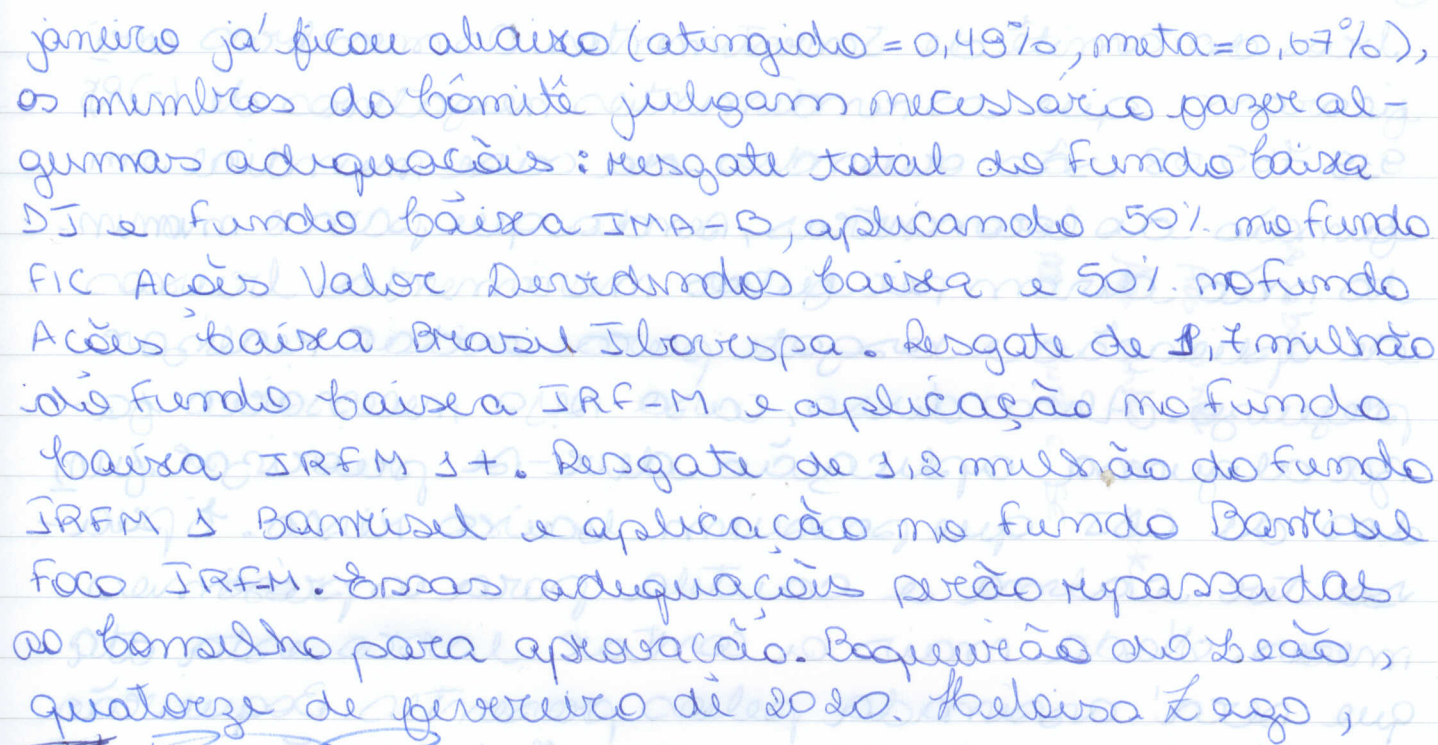 janeiro já ficou abaixo (atingido = 0,49%, meta = 0,67%),
os membros do Cômitê julgam necessário fazer al-
gumas adequações: resgate total do Fundo Caixa
DI e Fundo Caixa IMA-B, aplicando 50% no fundo
FIC Ações Valor Devidendos Caixa e 50% no fundo
Ações Caixa Brasil Ibovespa. Resgate de 1,7 milhão
do Fundo Caixa IRF-M e aplicação no fundo
Caixa IRFM 1+. Resgate de 1,2 milhão do fundo
IRFM 1 Banrisul e aplicação no fundo Banrisul
Foco IRF-M. Essas adequações serão repassadas
ao Conselho para aprovação. Boqueirão do Leão,
quatorze de fevereiro de 2020. Heloisa Zago,